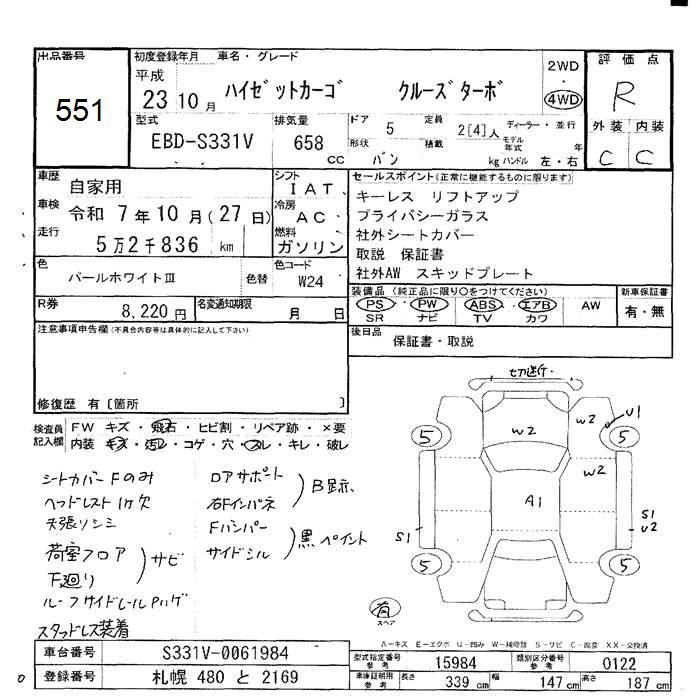 出品番号
551
初度登録年月 車名・グレード
平成
23 10月 ハイゼットカーゴ クルーズターボ
2WD
・
4WD
評価点
R
外装 内装
C C
型式 排気量 ドア 定員 ディーラー・並行
EBD-S331V 658 CC
5 2[4]人
形状 積載 モデル年式 年
バン kg ハンドル 左・右
車歴 自家用
シフト IAT
車検 令和 7年10月(27日)
冷房 AC
走行 5万2千836 km
燃料 ガソリン
色 パールホワイトⅢ 色替
色コード W24
R券 8,220円
名変通知期限 月 日
セールスポイント(正常に機能するものに限ります)
キーレス リフトアップ
プライバシーガラス
社外シートカバー
取説 保証書
社外AW スキッドプレート
装備品(純正品に限り○をつけてください)
PS PW ABS エアB AW
SR ナビ TV カワ
新車保証書
有・無
後日品
保証書・取説
注意事項申告欄(不具合内容等は具体的に記入して下さい)
修復歴 有[箇所 ]
検査員記入欄
FW キズ・飛石・ヒビ割・リペア跡・×要
内装 キズ・汚レ・コゲ・穴・スレ・キレ・破レ
シートカバーFのみ
ヘッドレスト1ケ欠
天張リシミ
荷室フロア
下廻り
)サビ
ルーフサイドレールPハゲ
スタッドレス装着
ロアサポート
右Fインパネ
)B跡
Fバンパー
サイドシル
)黒ペイント
切遂行
W2
W2
U1
W2
5
5
A1
S1
S1
U2
5
5
有
スペア
A－キズ E－エクボ U－凹み W－補修跡 S－サビ C－腐食 XX－交換済
車台番号 S331V-0061984
登録番号 札幌 480 と 2169
型式指定番号 参考 15984
類別区分番号 参考 0122
車庫証明用 参考 長さ 339 cm 幅 147 cm 高さ 187 cm